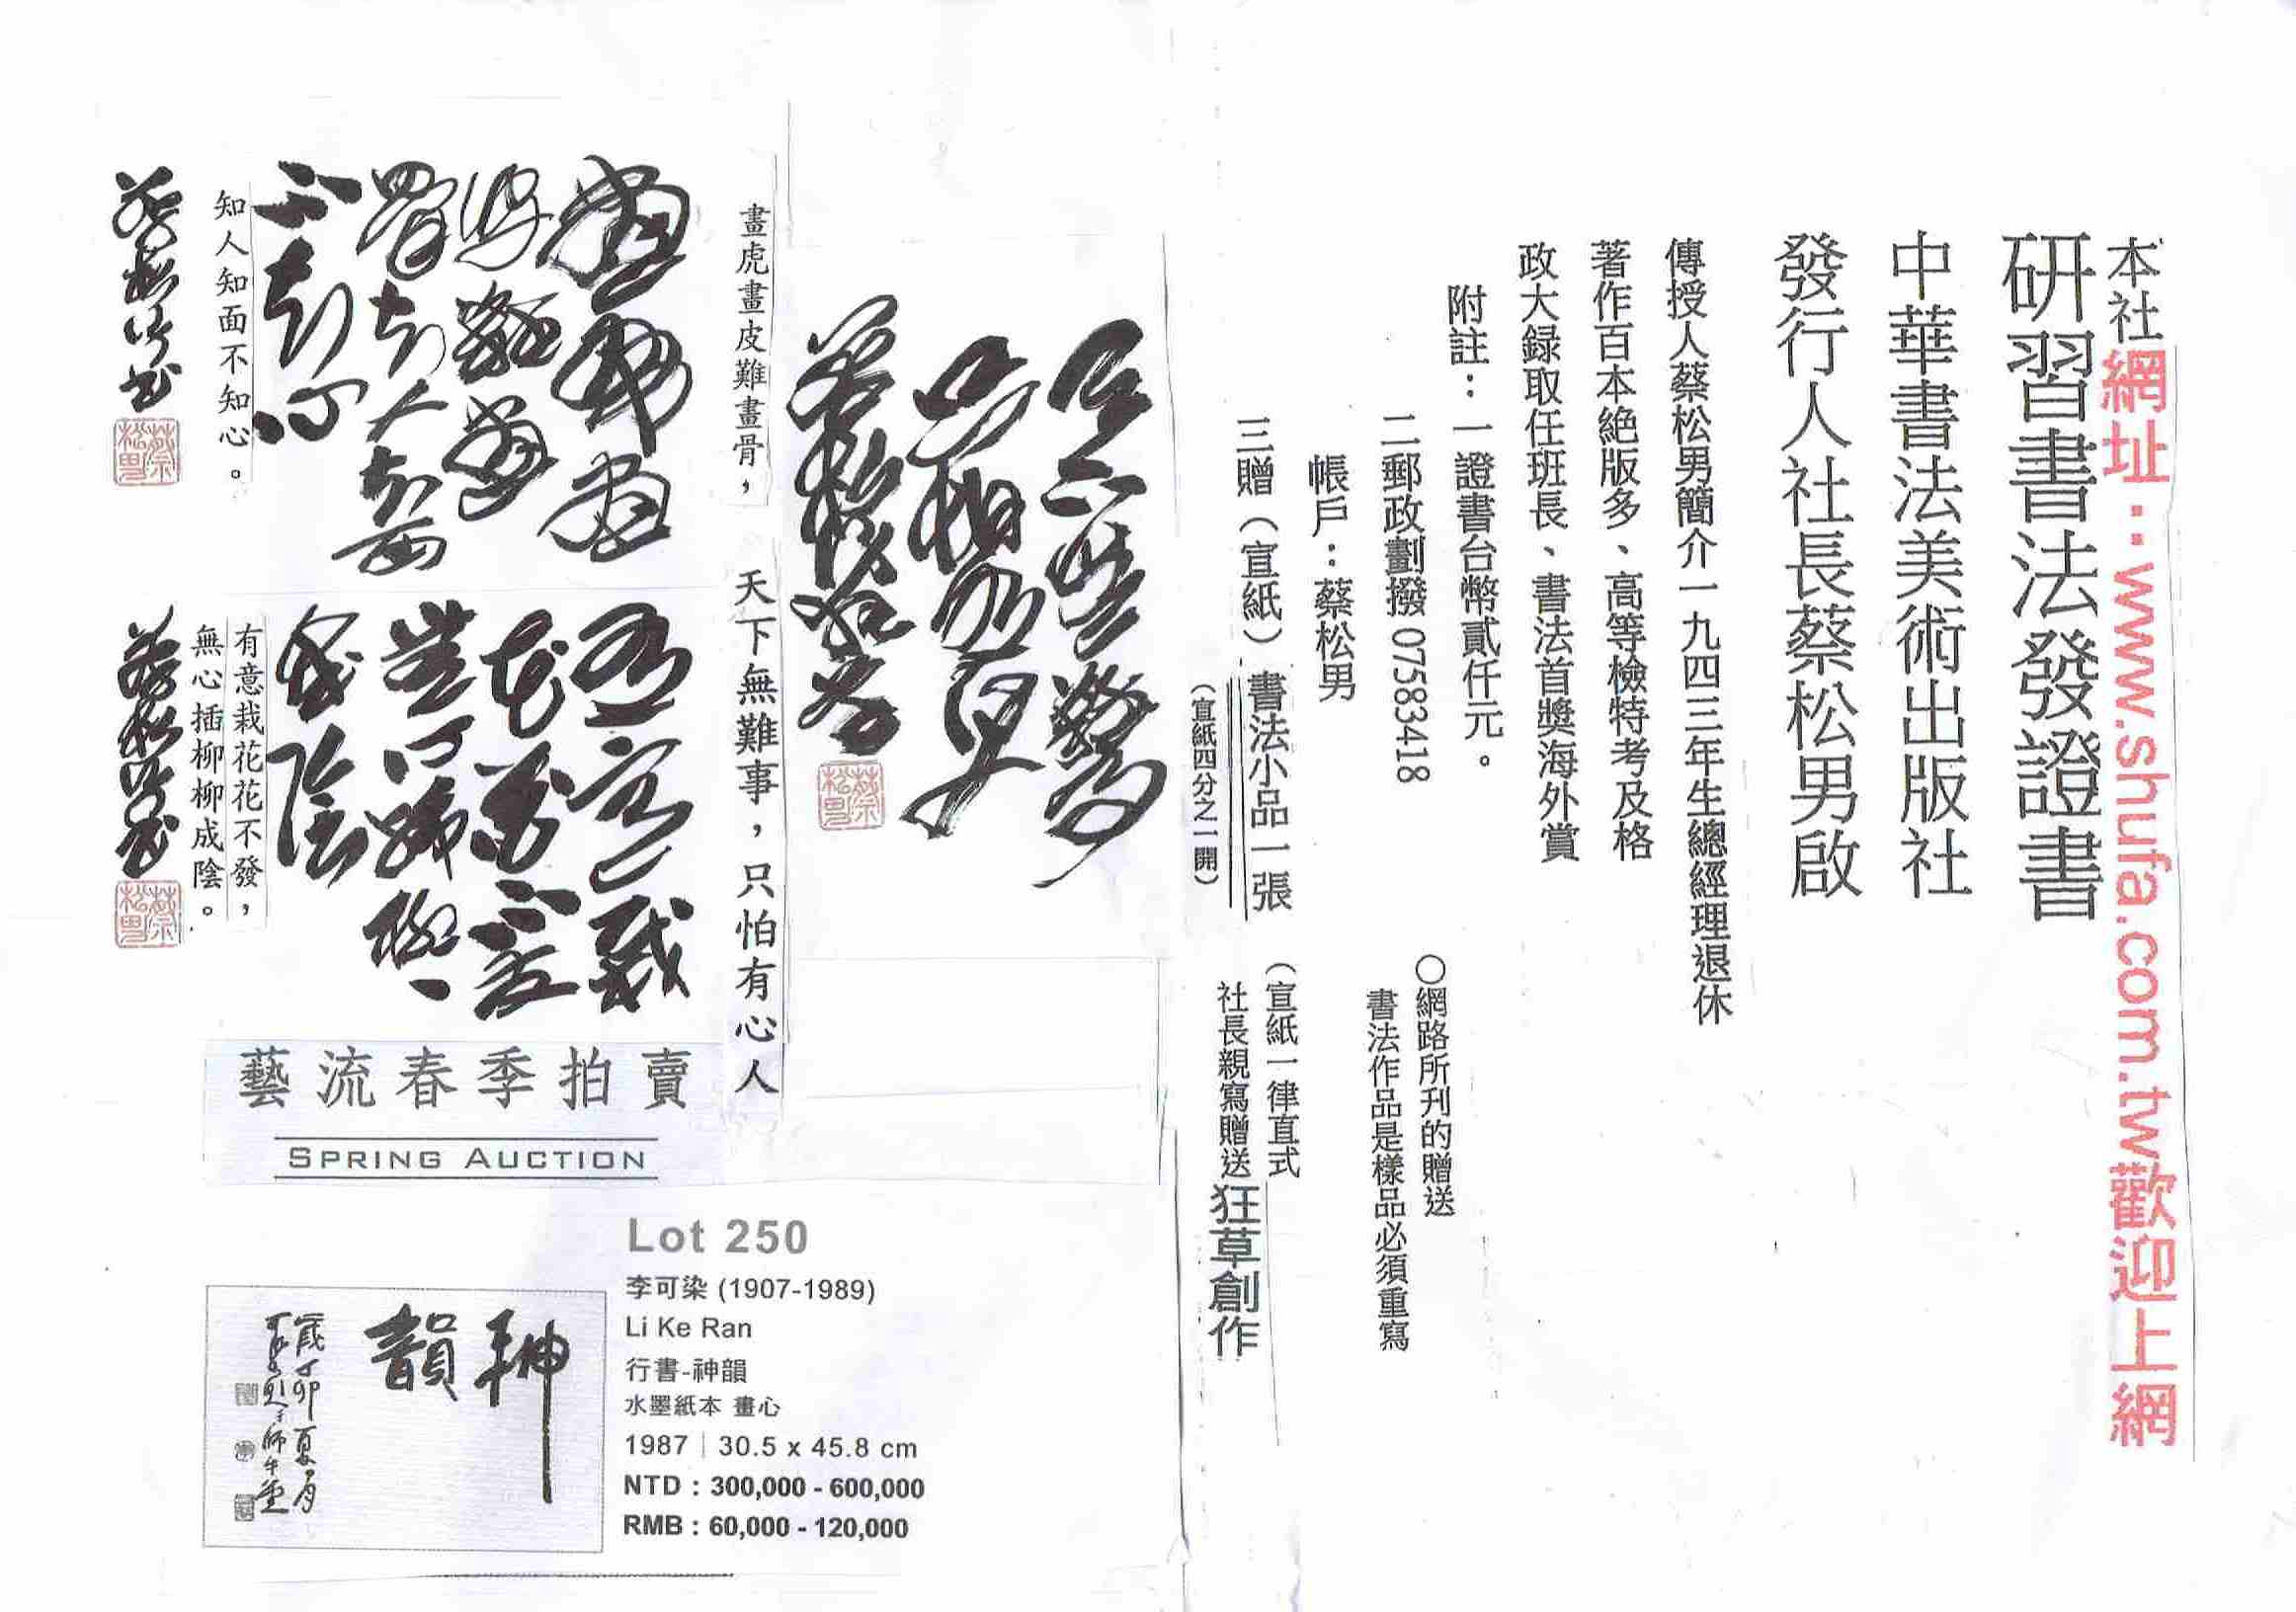 本社網址：www.shufa.com.tw歡迎上網
研習書法發證書
中華書法美術出版社
發行人社長蔡松男啟
傳授人蔡松男簡介一九四三年生總經理退休
著作百本絕版多、高等檢特考及格
政大録取任班長、書法首獎海外賞
附註：一證書台幣貳仟元。
二郵政劃撥07583418
帳戶：蔡松男
三贈（宣紙）書法小品一張
（宣紙四分之一開）
○網路所刊的贈送
書法作品是樣品必須重寫
（宣紙一律直式
社長親寫贈送狂草創作
天下無難事，只怕有心人
畫虎畫皮難畫骨，
知人知面不知心。
有意栽花花不發，
無心插柳柳成陰。
蔡松男
蔡松男
蔡松男
藝流春季拍賣
SPRING AUCTION
Lot 250
李可染 (1907-1989)
Li Ke Ran
行書-神韻
水墨紙本 畫心
1987 | 30.5 x 45.8 cm
NTD : 300,000 - 600,000
RMB : 60,000 - 120,000
神韻